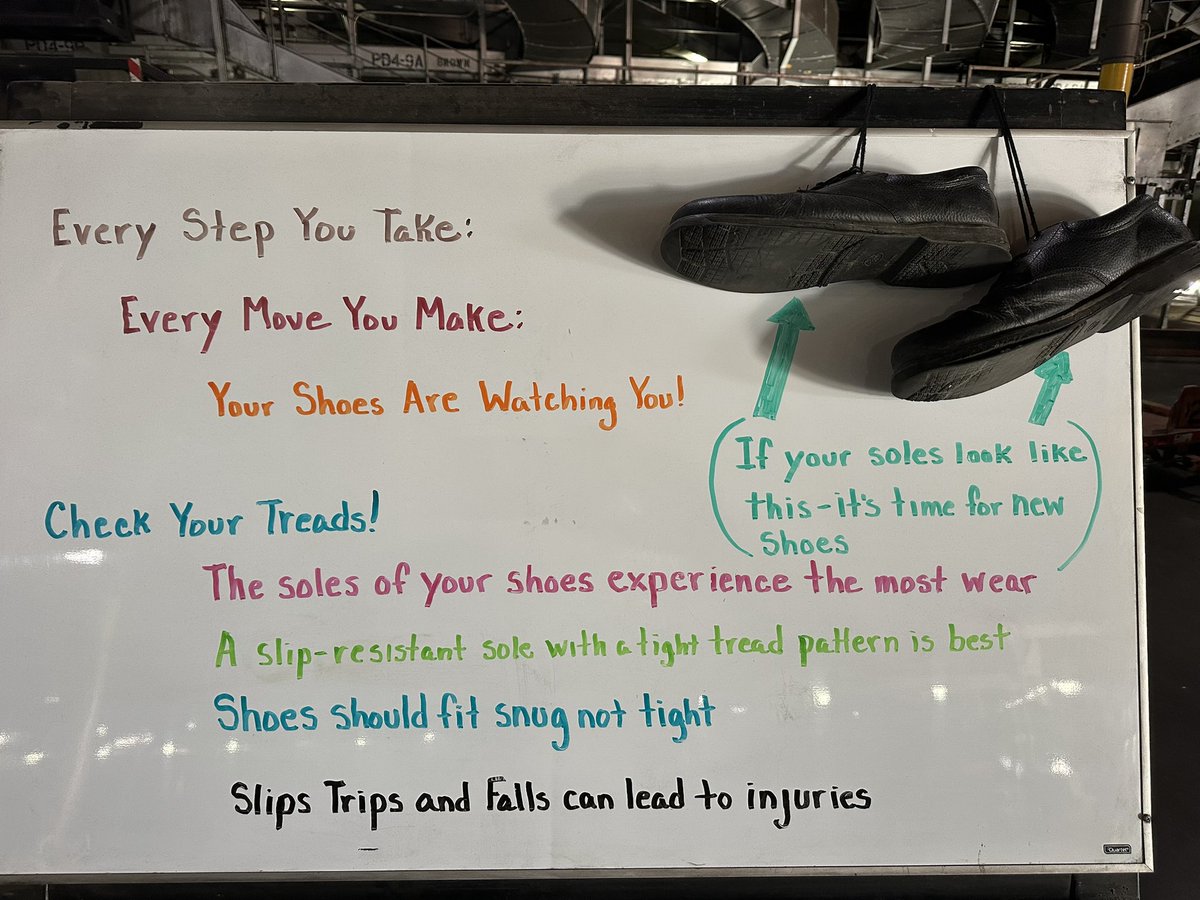 PD4-9A BROWN
Every Step You Take:
Every Move You Make:
Your Shoes Are Watching You!
If your soles look like
this-it's time for new
Shoes
Check Your Treads!
The soles of your shoes experience the most wear
A slip-resistant sole with a tight tread pattern is best
Shoes should fit snug not tight
Slips Trips and Falls can lead to injuries
Quartet